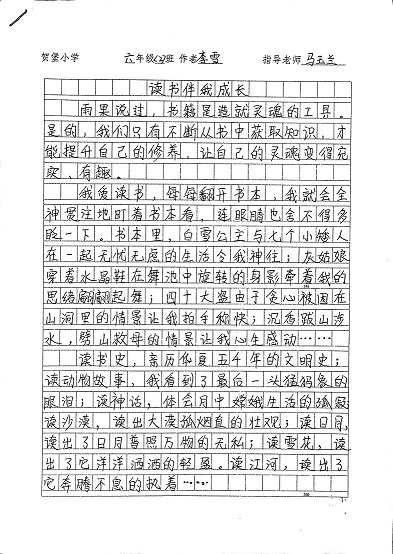 贺堡小学 六年级(2)班 作者李雪 指导老师 马玉兰
读书伴我成长
雨果说过，书籍是造就灵魂的工具。
是的，我们只有不断从书中获取知识，才
能提升自己的修养，让自己的灵魂变得充
实、有趣。
我爱读书，每每翻开书本，我就会全
神贯注地盯着书本看，连眼睛也舍不得多
眨一下。书本里，白雪公主与七个小矮人
在一起无忧无虑的生活令我神往；灰姑娘
穿着水晶鞋在舞池中旋转的身影牵着我的
思绪翩翩起舞；四十大盗由于贪心被困在
山洞里的情景让我拍手称快；沉香跋山涉
水，劈山救母的情景让我心生感动……
读书史，亲历华夏五千年的文明史；
读动物故事，我看到了最后一头猛犸象的
眼泪；读神话，体会月中嫦娥生活的孤寂
读沙漠，读出大漠孤烟直的壮观；读日月，
读出了日月普照万物的无私；读雪花，读
出了它洋洋洒洒的轻盈。读江河，读出了
它奔腾不息的执着……